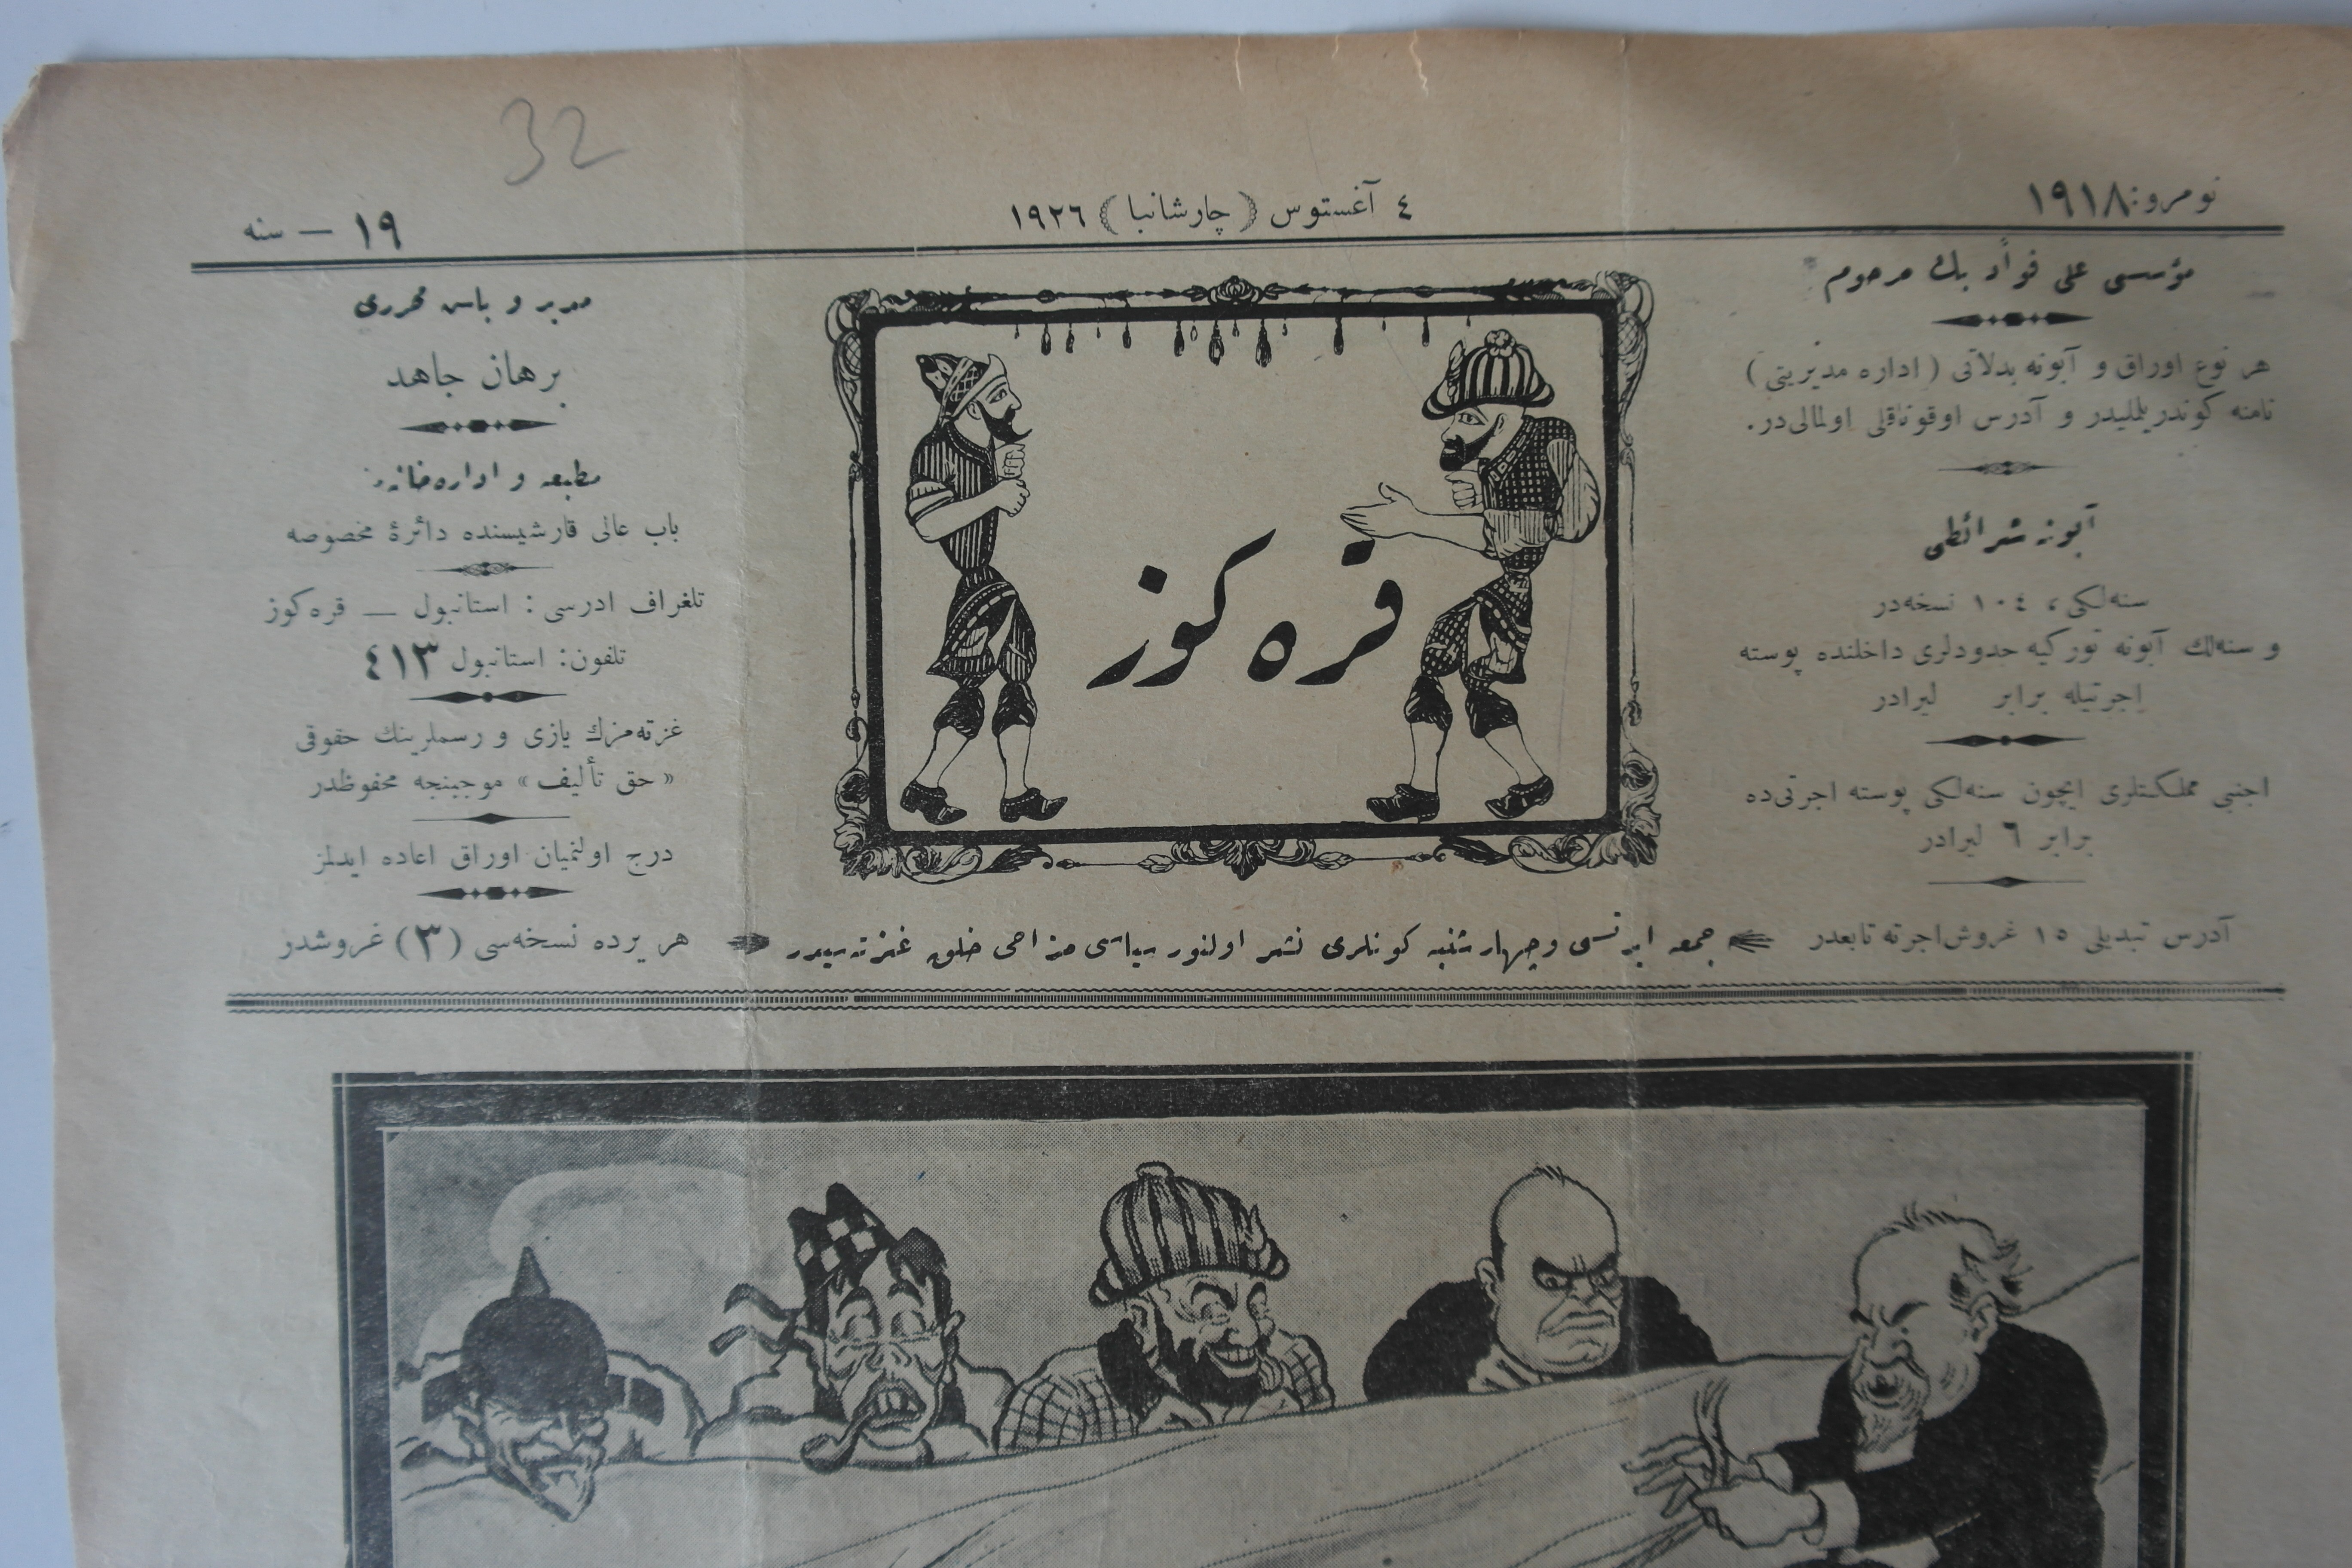 32
نومرو: ١٩١٨
٤ آغستوس (چارشانبا) ١٩٢٦
١٩ — سنه
مؤسسی علی فوأد بك مرحوم
هر نوع اوراق و آبونه بدلاتی (اداره مدیریتی)
نامنه كوندریلملیدر و آدرس اوقوناقلی اولمالی‌در.
آبونه شرائطی
سنه‌لكی، ١٠٤ نسخه‌در
و سنه‌لك آبونه توركیه حدودلری داخلنده پوسته
اجرتیله برابر لیرادر
اجنبی مملكتلری ایچون سنه‌لكی پوسته اجرتی‌ده
برابر ٦ لیرادر
آدرس تبدیلی ١٥ غروش اجرته تابعدر
قره كوز
مدیر و باش محرری
برهان جاهد
مطبعه و اداره‌خانه:
باب عالی قارشیسنده دائرهٔ مخصوصه
تلغراف ادرسی: استانبول — قره‌كوز
تلفون: استانبول ٤١٣
غزته‌مزك یازی و رسملرینك حقوقی
«حق تألیف» موجبنجه محفوظدر
درج اولنمیان اوراق اعاده ایدلمز
هر یرده نسخه‌سی (٣) غروشدر
جمعه ایرتسی و چهارشنبه كونلری نشر اولنور سیاسی مزاحی خلق غزته‌سیدر